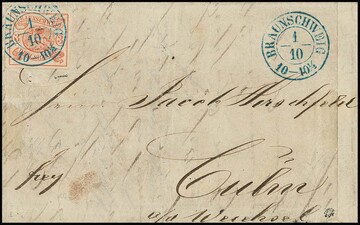 BRAUNSCHWEIG
1
10
10-10½
BRAUNSCHWEIG
1
10
10-10½
Herrn
Jacob Hirschfeld
frey
Culm
a/d Weichsel